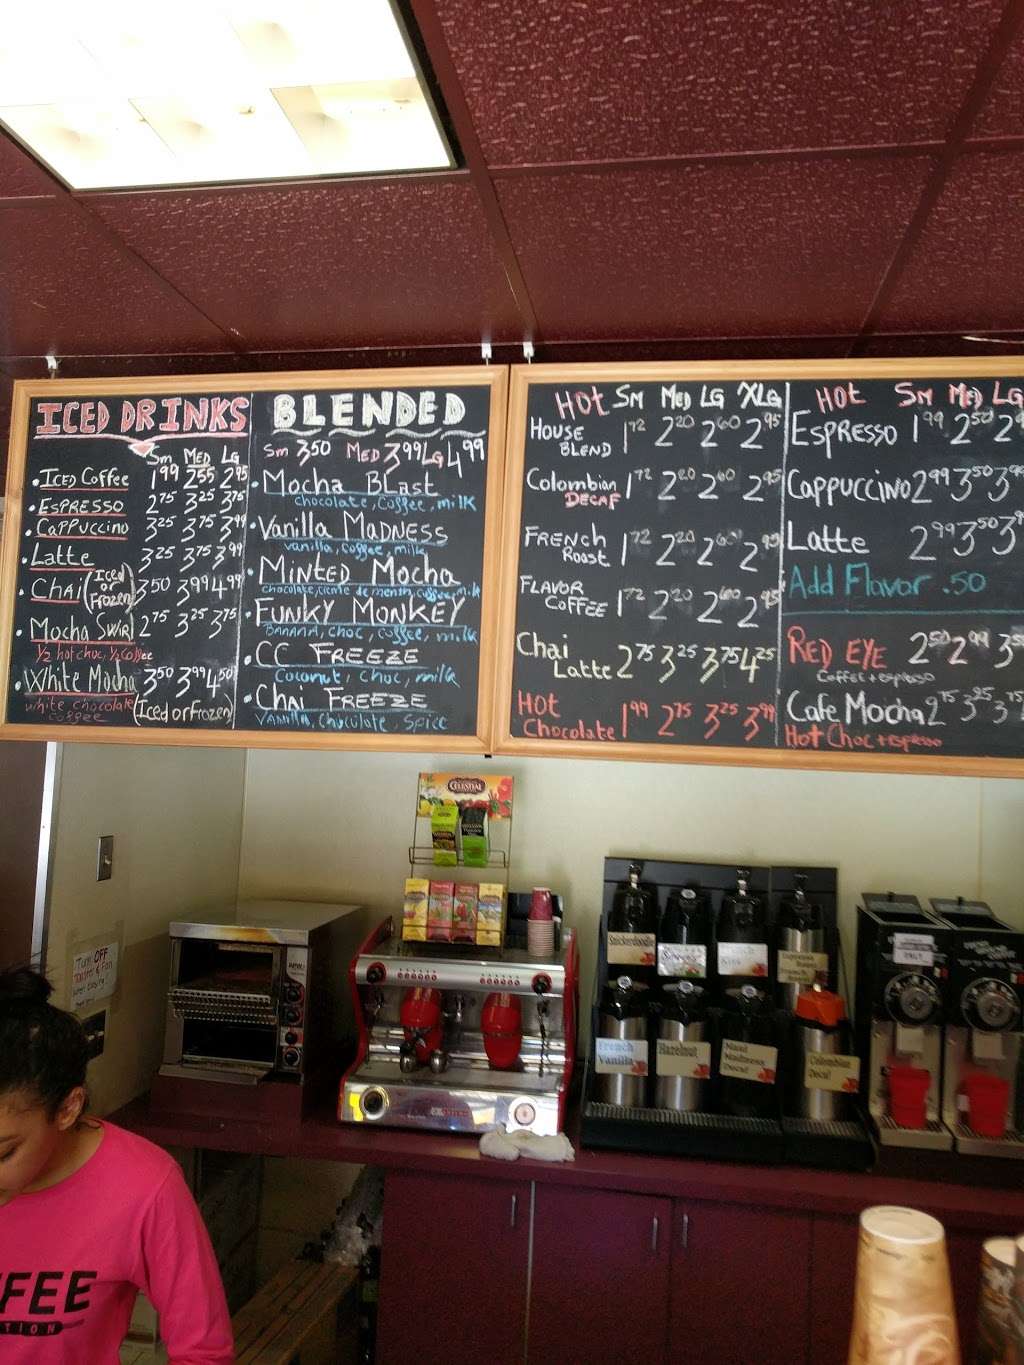 ICED DRINKS
Sm MED LG
• ICED COFFEE 1.99 2.55 2.95
• ESPRESSO 2.75 3.25 3.75
• CAPPUCCINO 3.25 3.75 3.99
• Latte 3.25 3.75 3.99
• CHAI (Iced or Frozen) 3.50 3.99 4.99
• Mocha Swirl 2.75 3.25 3.75
1/2 hot choc, 1/2 coffee
• White Mocha 3.50 3.99 4.50
white chocolate coffee (Iced or Frozen)
BLENDED
Sm 3.50 MED 3.99 LG 4.99
• Mocha BLast
chocolate, Coffee, milk
• Vanilla MADNESS
vanilla, coffee, milk
• MINTED Mocha
chocolate, creme de menth, coffee, milk
• FUNKY MONKEY
BANANA, choc, coffee, milk
• CC FREEZE
Coconut, choc, milk
• Chai FREEZE
VANILLA, chocolate, spice
HOT Sm MED LG XLG
HOUSE BLEND 1.72 2.20 2.60 2.95
Colombian DECAF 1.72 2.20 2.60 2.95
FRENCH Roast 1.72 2.20 2.60 2.95
FLAVOR COFFEE 1.72 2.20 2.60 2.95
Chai Latte 2.75 3.25 3.75 4.25
HOT Chocolate 1.99 2.75 3.25 3.99
HOT Sm MED LG
ESPRESSO 1.99 2.50
CAPPUCCINO 2.99 3.50
Latte 2.99 3.50
Add Flavor .50
RED EYE 2.50 2.99
Coffee + espresso
Cafe Mocha 2.75 3.25
Hot Choc + espresso
CELESTIAL
Turn OFF
Toaster & Fan
Snickerdoodle
French Vanilla
Hazelnut
Colombian Decaf
FFEE
TION